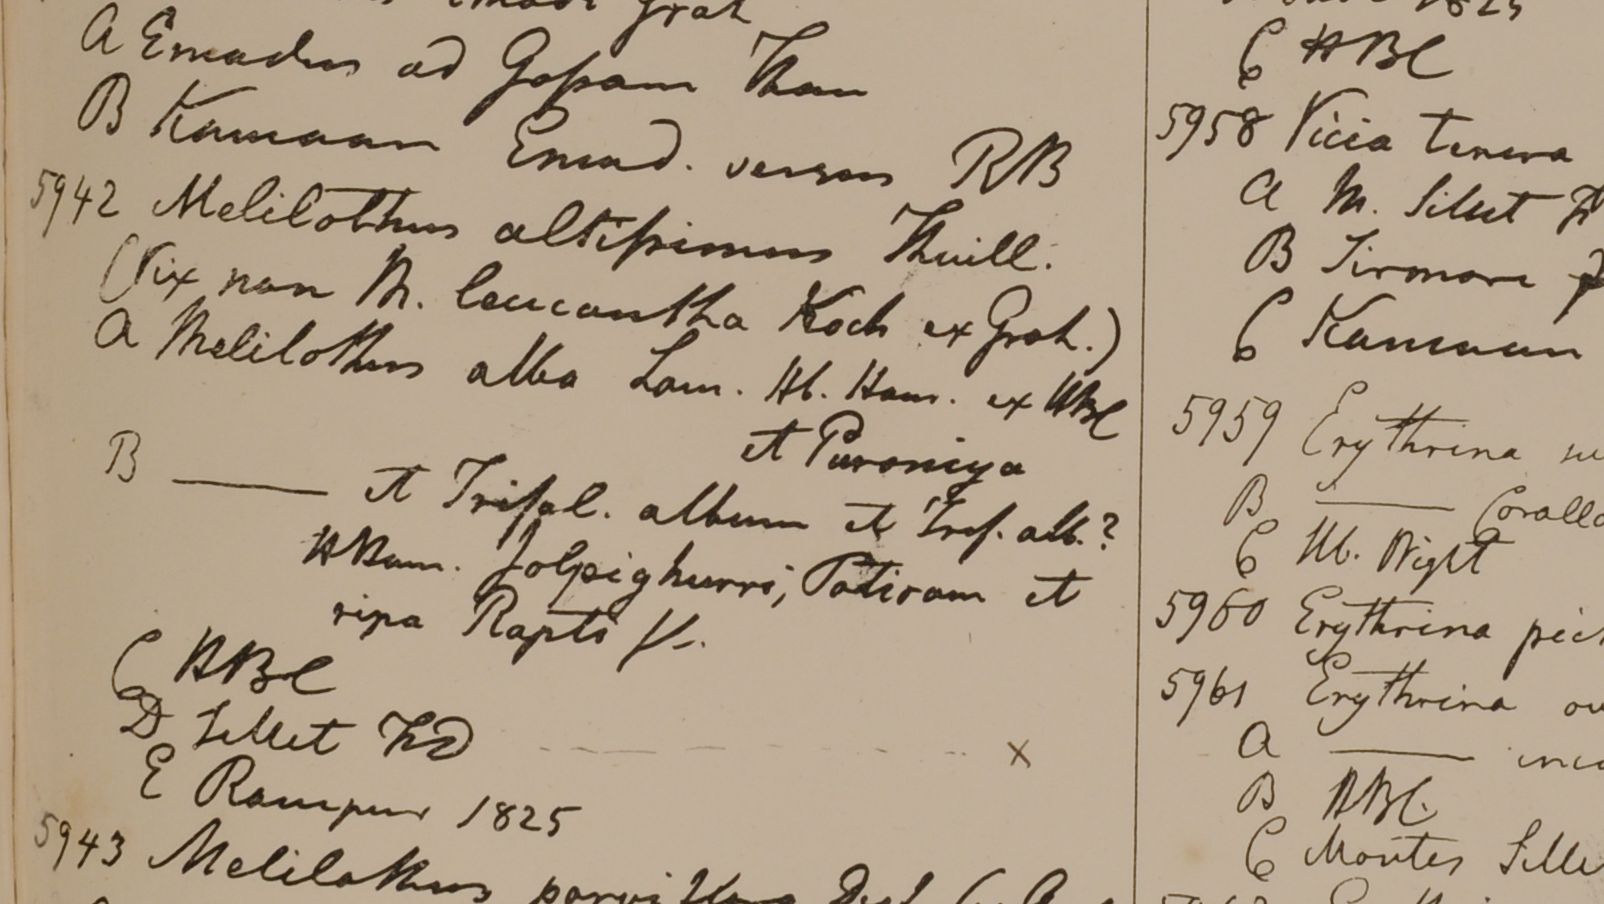 Grah
A Emodus ad Gossam Than
B Kamaon Emod. versus RB
5942 Melilothus altissimus Thuill.
(Vix non M. leucantha Koch ex Grah.)
a Melilothus alba Lam. Hb. Ham. ex HBC
et Puroniya
B —— et Trifol. album et Trif. alb.?
HHam. Jolpighurri, Patiram et
ripa Rapti fl.
C HBC
D Sillet FD x
E Rampur 1825
5943 Melilothus parviflora Desf
1825
C HBC
5958 Vicia tenera
a M. Sillet
B Sirmore
C Kamaon
5959 Erythrina
B —— Corallo
C Hb. Wight
5960 Erythrina pict
5961 Erythrina ov
a —— inca
B HBC.
C Montes Sille